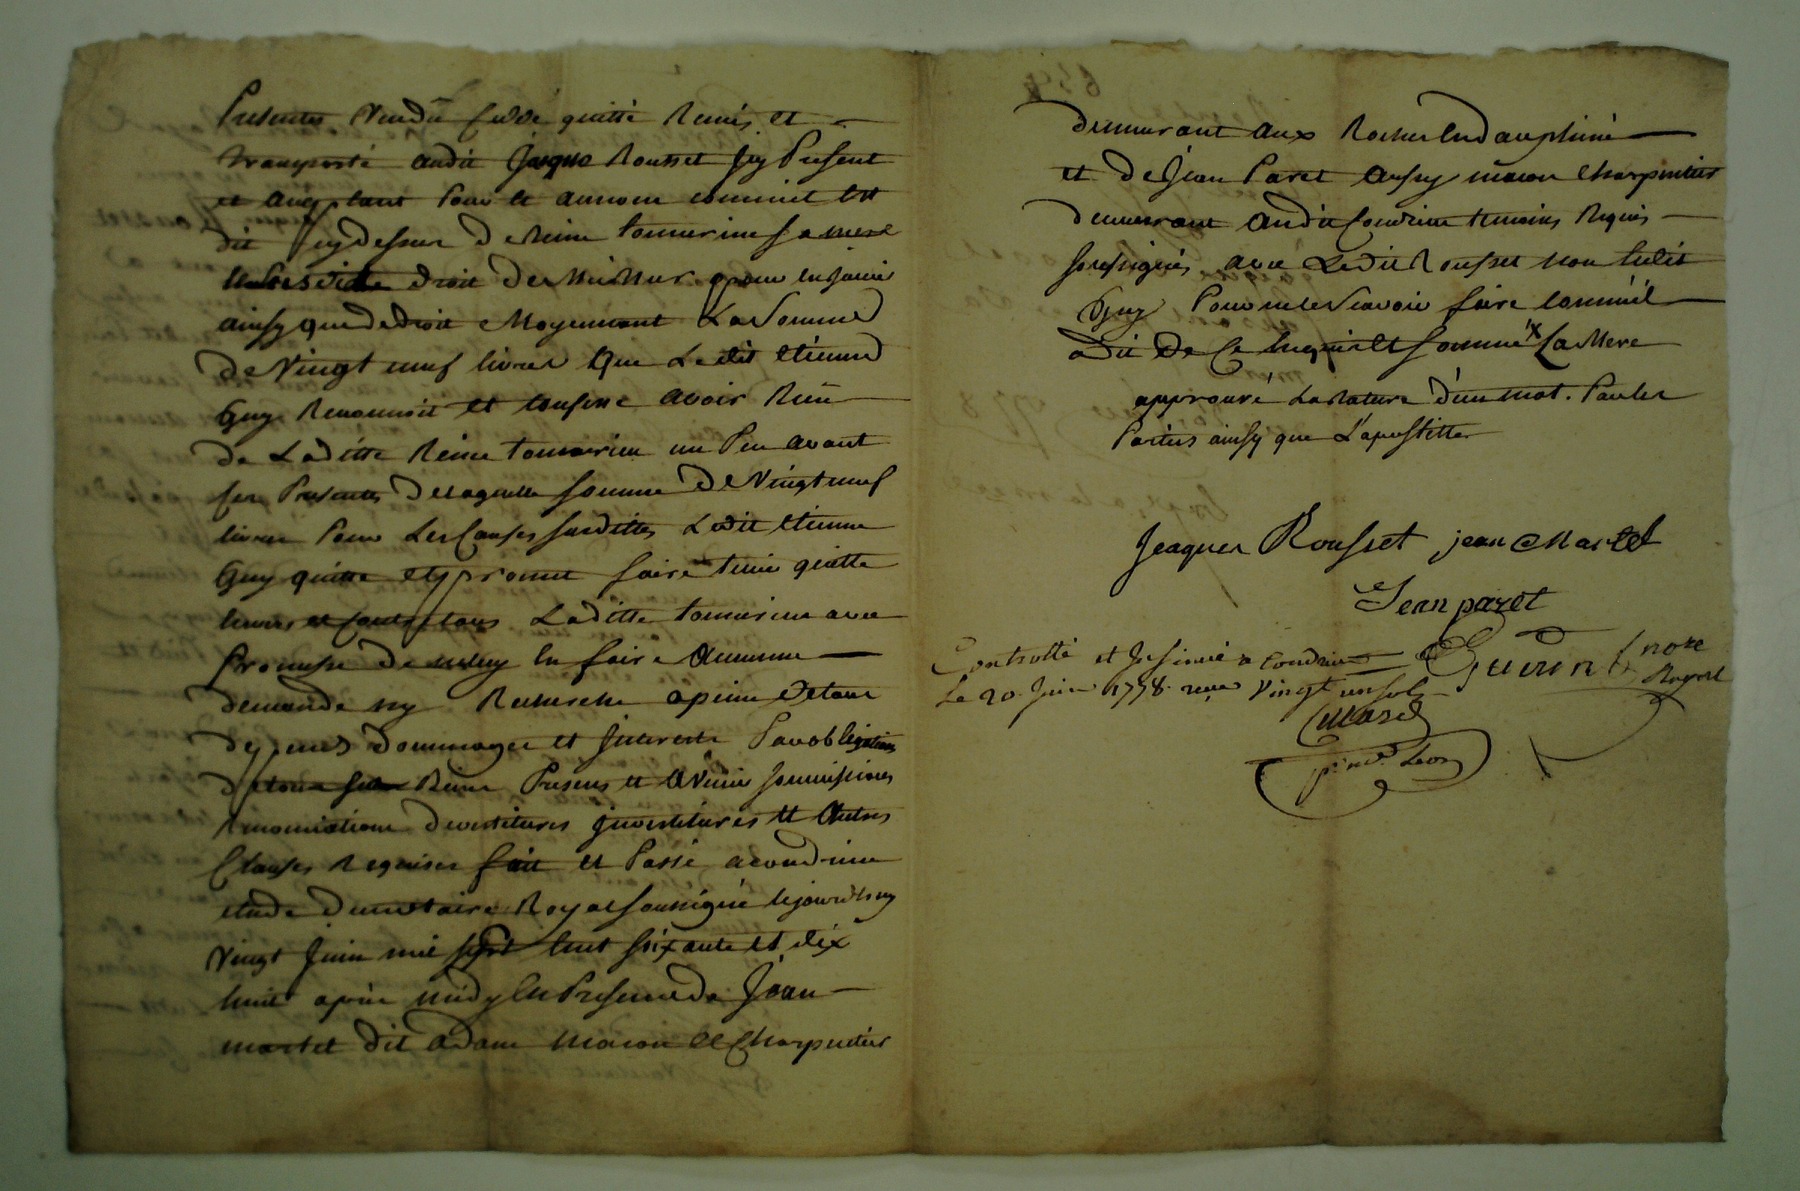 Presentes Vendû Cedé quitté Remis et
transporté audit Jaque Rousset Jcy Present
et acceptant Pour et aunom comme est
dit Jcy dessus de Reine tonnerine sa mere
droit de pour en jouir
ainsy que de droit Moyennant La Somme
de Vingt neuf livres Que Ledit etienne
Guy Reconnoit et confesse avoir Reçu
de Laditte Reine tonnerine un Peu avant
ses Presentes de laquelle somme de Vingt neuf
livres Pour Les Causes susdittes Ledit etienne
Guy quitte et promet faire tenir quitte
envers et contre tous Laditte tonnerine avec
Promesse de ne luy en faire Aucune
demande ny Recherche a peine de tous
depens Dommages et Jnterests Par obligation
de tous ses Biens Presens et aVenir soumissions
Renonciations devestitures jnvestitures et Autres
Clauses Requises fait et Passé a condrieu
etude du notaire Royal soussigné cejourdhuy
Vingt Juin mil sept cent soixante et dix
huit après midy En Presence de Jean
martet dit adam macon et Charpentier
demeurant aux Roches en dauphiné
et de Jean Paret aussy macon Charpentier
demeurant audit Condrieu temoins Requis
soussignés avec Ledit Rousset non Ledit
Guy Pour ne le Scavoir faire comme il
a dit de Ce Enquis et sommé x La Mere
approuvé La Rature d'un mot. Par les
Parties ainsy que L'apostille
Jeaques Rousset jean Martet
Jean paret
Controllé et Jnsinué a Condrieu Guerin not.re
Le 20. Juin 1778. reçu Vingt un sols Royal